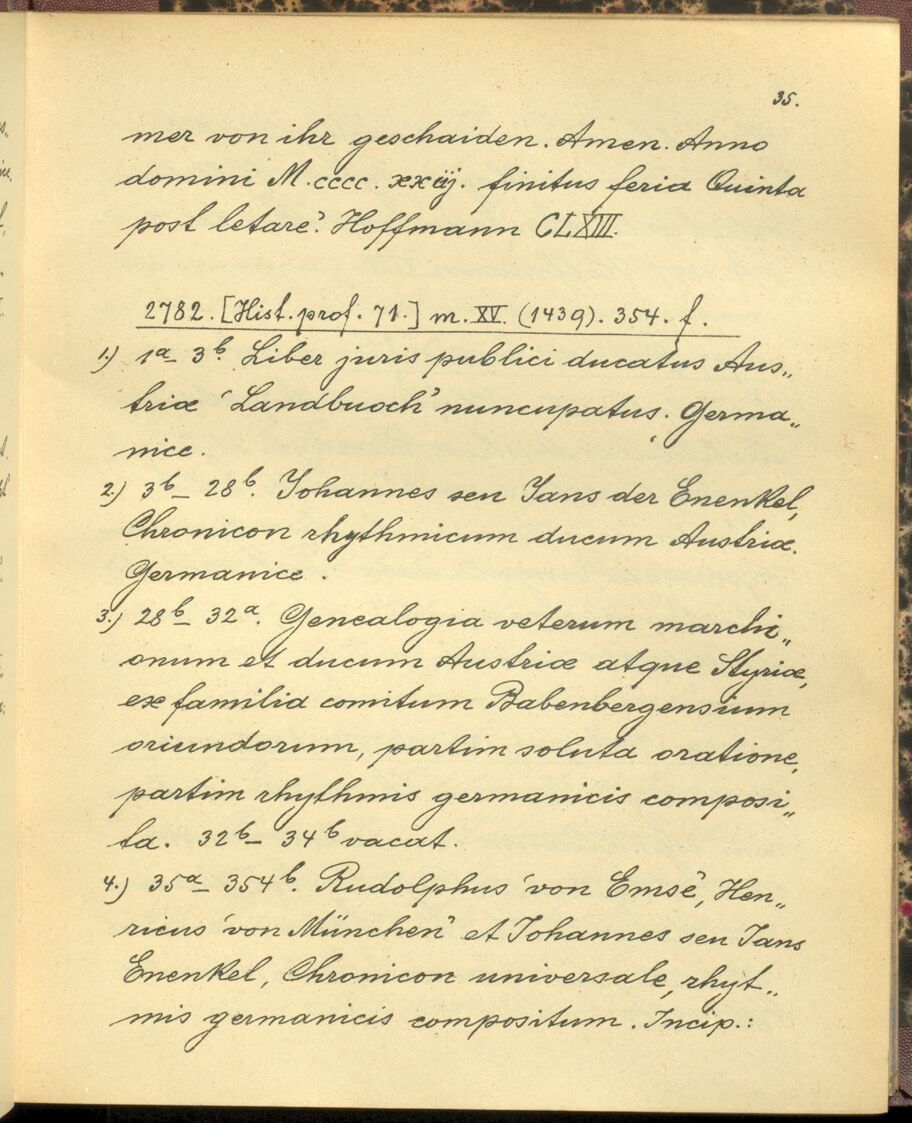 35.
mer von ihr geschaiden. Amen. Anno
domini M.cccc.xxiij. finitus feria Quinta
post letare'. Hoffmann CLXIII.
2782. [Hist. prof. 71.] m. XV. (1439). 354. f.
1.) 1a– 3b. Liber juris publici ducatus Aus„
triæ 'Landbuoch' nuncupatus. Germa„
nice.
2.) 3b– 28b. Johannes seu Jans der Enenkel,
Chronicon rhythmicum ducum Austriæ.
Germanice.
3.) 28b– 32a. Genealogia veterum marchi„
onum et ducum Austriæ atque Styriæ,
ex familia comitum Babenbergensium
oriundorum, partim soluta oratione,
partim rhythmis germanicis composi„
ta. 32b– 34b vacat.
4.) 35a– 354b. Rudolphus 'von Emse', Hen„
ricus 'von München' et Johannes seu Jans
Enenkel, Chronicon universale, rhyt„
mis germanicis compositum. Incip.: